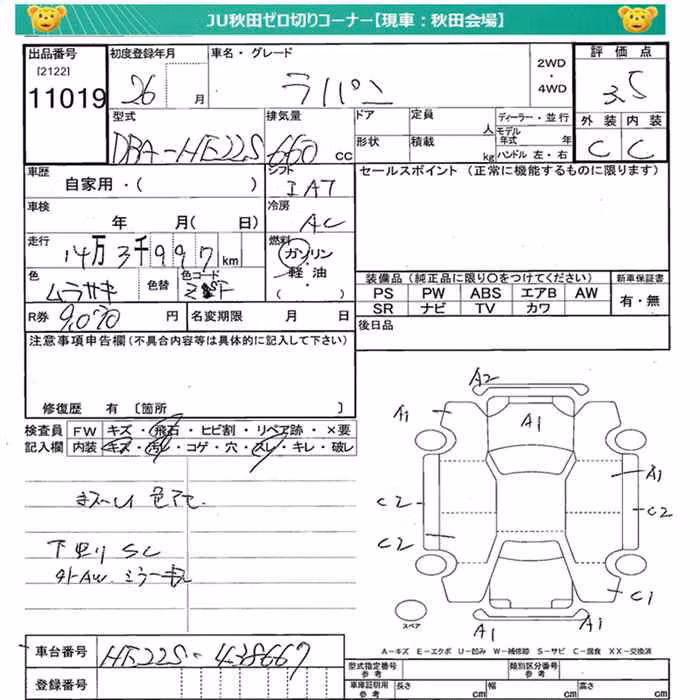 JU秋田ゼロ切りコーナー【現車：秋田会場】
出品番号 初度登録年月 車名・グレード 2WD・4WD 評価点
[2122]
11019 26 月 ラパン 3.5
型式 排気量 ドア 定員 人 ディーラー・並行 外装 内装
DBA-HE22S 660 cc 形状 積載 kg モデル年式 年 ハンドル 左・右 C C
車歴 シフト セールスポイント（正常に機能するものに限ります）
自家用・（ ） IAT
車検 冷房
年 月（ 日） AC
走行 燃料
14万3千997km ガソリン・軽油・（ ）
色 色替 色コード 装備品（純正品に限り○をつけてください） 新車保証書
ムラサキ PS PW ABS エアB AW 有・無
SR ナビ TV カワ
R券 9,070 円 名変期限 月 日 後日品
注意事項申告欄（不具合内容等は具体的に記入して下さい）
修復歴 有 〔箇所 〕
検査員 FW キズ・飛石・ヒビ割・リペア跡・×要
記入欄 内装 キズ・汚レ・コゲ・穴・スレ・キレ・破レ
色アセ
下廻り SC
外AW ミラー
A2
A1 A1
A1
C2 C2
C2
C1
A1 A1
スペア
A－キズ E－エクボ U－凹み W－補修跡 S－サビ C－腐食 XX－交換済
車台番号 HE22S-438667
登録番号
型式指定番号 参考 類別区分番号 参考
車庫証明用 参考 長さ cm 幅 cm 高さ cm